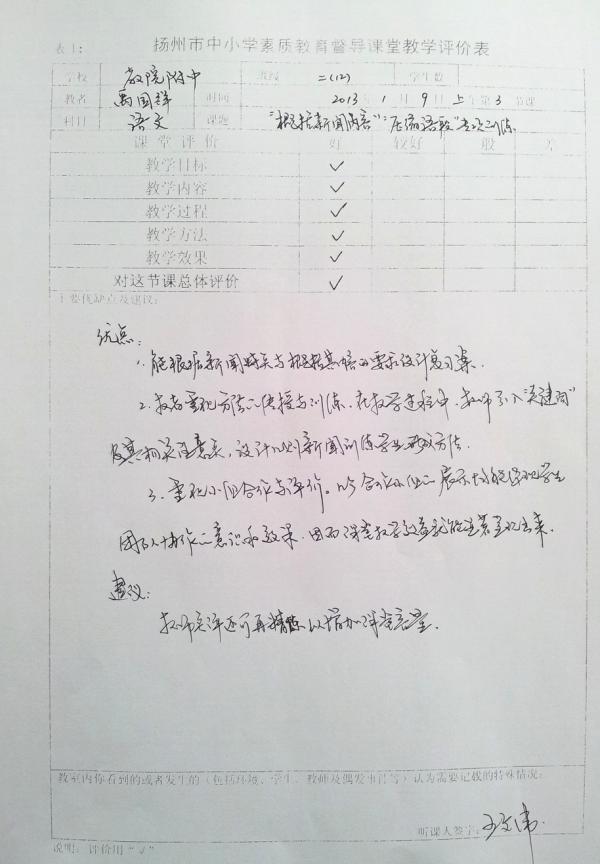 表1: 扬州市中小学素质教育督导课堂教学评价表
学校 教院附中 班级 二(12) 学生数
教者 禹国祥 时间 2013年1月9日上午第3节课
科目 语文 课题 "根据新闻内容""压缩语段"专项训练
课堂评价 好 较好 一般 差
教学目标 ✓
教学内容 ✓
教学过程 ✓
教学方法 ✓
教学效果 ✓
对这节课总体评价 ✓
主要优缺点及建议:
优点:
1. 能根据新闻 的要求设计复习案.
2. 教者重视方法的传授与训练. 在教学过程中, 教师引入"关键词"
及其相关注意点, 设计 新闻训练学生 方法.
3. 重视小组合作与评价。以合作小组的展示 学生
团队协作的意识和效果. 因而课堂教学效益 显现出来.
建议:
教师 还可再精炼以增加课堂容量.
教室内你看到的或者发生的(包括环境、学生、教师及偶发事件等)认为需要记载的特殊情况:
听课人签字:
说明: 评价用"✓"